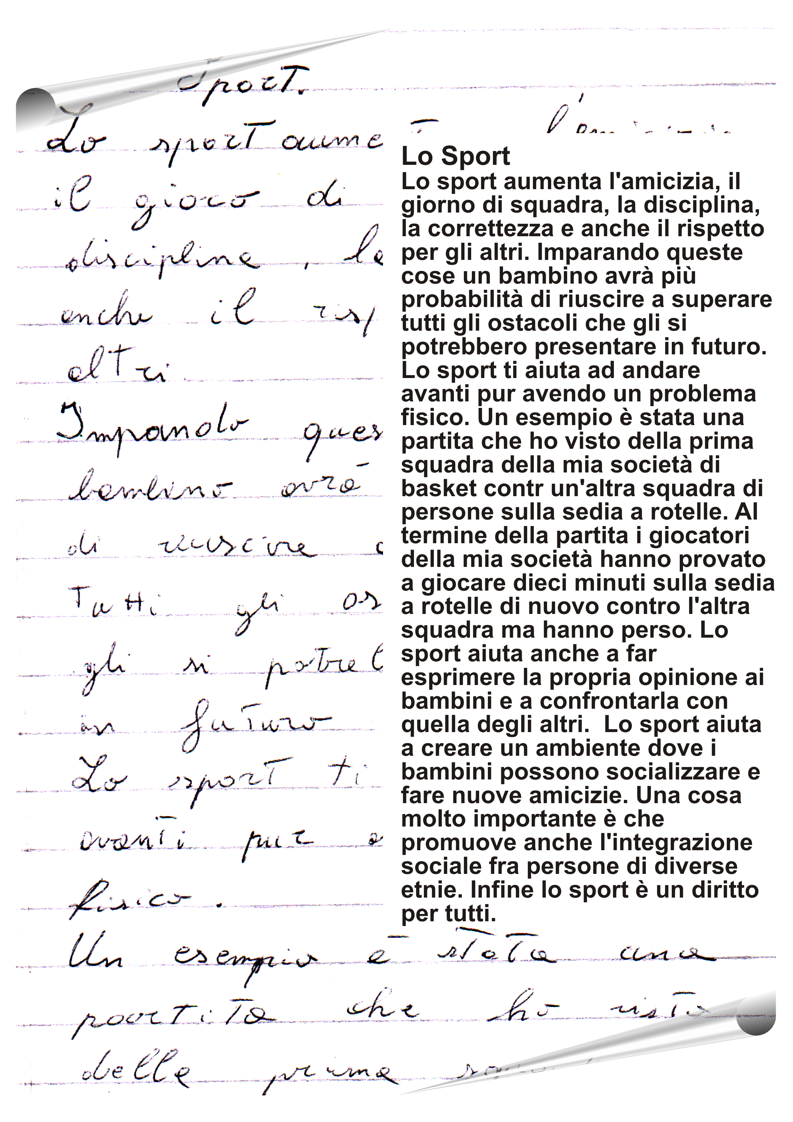 Sport.
Lo sport aume
il gioco di
disciplina, la
anche il risp
altri
Imparando ques
bambino avrà
di riuscire a
Tutti gli os
gli si potreb
in futuro
Lo sport ti
avanti pur a
fisico.
Un esempio è stata una
partita che ho visto
della prima
Lo Sport
Lo sport aumenta l'amicizia, il
giorno di squadra, la disciplina,
la correttezza e anche il rispetto
per gli altri. Imparando queste
cose un bambino avrà più
probabilità di riuscire a superare
tutti gli ostacoli che gli si
potrebbero presentare in futuro.
Lo sport ti aiuta ad andare
avanti pur avendo un problema
fisico. Un esempio è stata una
partita che ho visto della prima
squadra della mia società di
basket contr un'altra squadra di
persone sulla sedia a rotelle. Al
termine della partita i giocatori
della mia società hanno provato
a giocare dieci minuti sulla sedia
a rotelle di nuovo contro l'altra
squadra ma hanno perso. Lo
sport aiuta anche a far
esprimere la propria opinione ai
bambini e a confrontarla con
quella degli altri.  Lo sport aiuta
a creare un ambiente dove i
bambini possono socializzare e
fare nuove amicizie. Una cosa
molto importante è che
promuove anche l'integrazione
sociale fra persone di diverse
etnie. Infine lo sport è un diritto
per tutti.